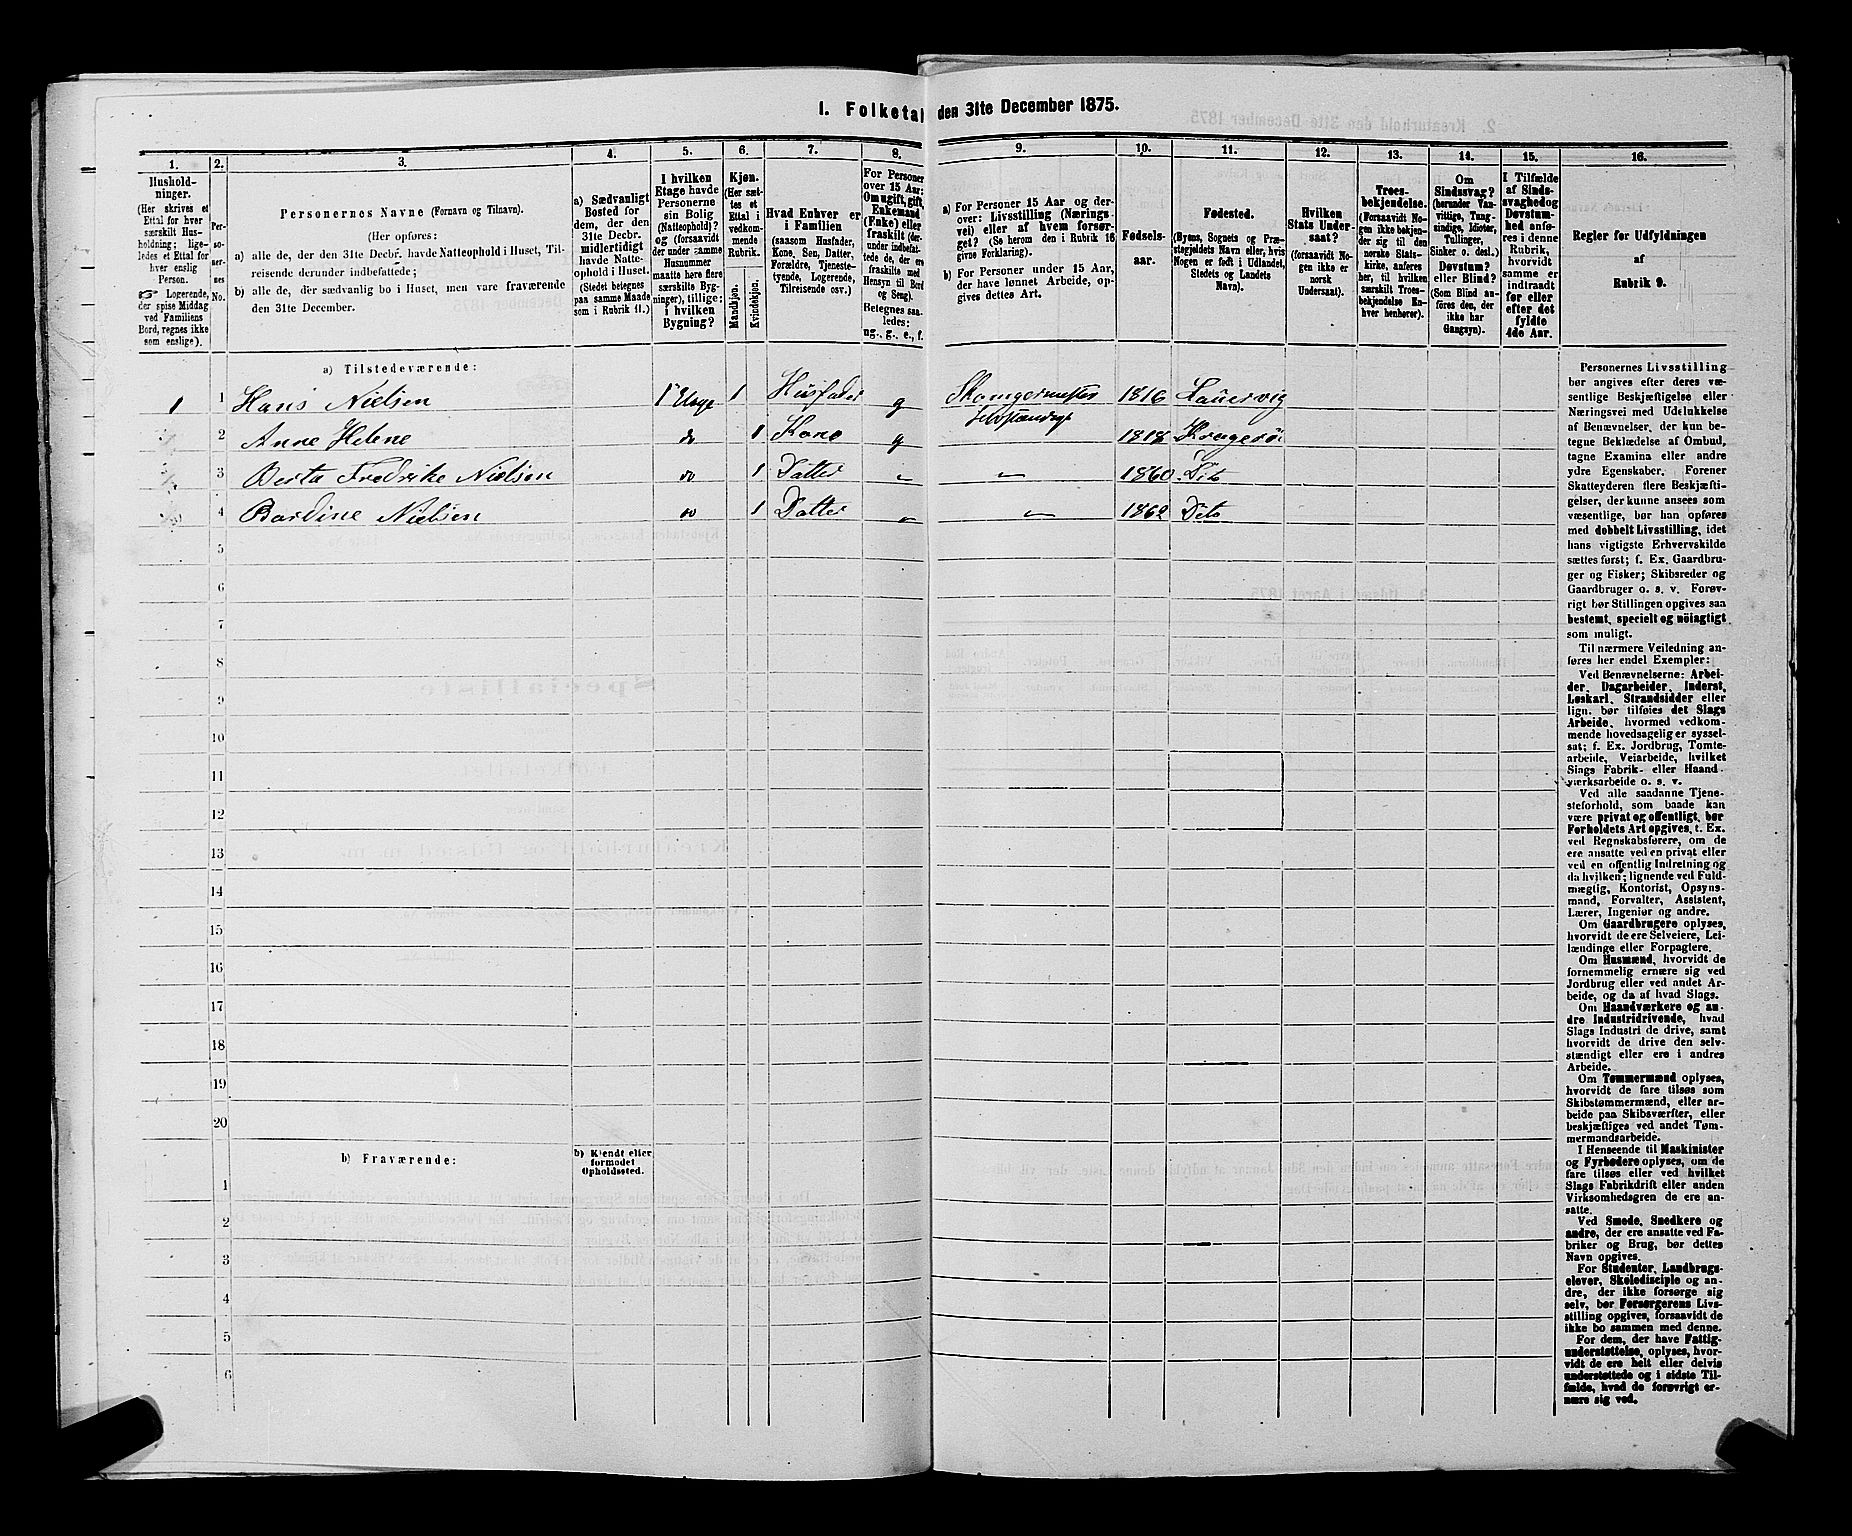 1. Folketal den 31te December 1875.
1. 2. 3. 4. 5. 6. 7. 8. 9. 10. 11. 12. 13. 14. 15. 16.
Hushold-
ninger.
(Her skrives et
Ettal for hver
særskilt Hus-
holdning; lige-
ledes et Ettal for
hver enslig
Person.
☞ Logerende,
der spise Middag
ved Familiens
Bord, regnes ikke
som enslige).
Per-
so-
ner-
nes
No.
Personernes Navne (Fornavn og Tilnavn).
(Her opføres:
a) alle de, der den 31te Decbr. havde Natteophold i Huset, Til-
reisende derunder indbefattede;
b) alle de, der sædvanlig bo i Huset, men vare fraværende
den 31te December.
a) Sædvanligt
Bosted for
dem, der den
31te Decbr.
midlertidigt
havde Natte-
ophold i Huset.
(Stedet betegnes
paa samme Maade
som i Rubrik 11.)
I hvilken
Etage havde
Personerne
sin Bolig
(Natteophold)?
og (forsaavidt
der under samme
Husnummer
maatte høre flere
særskilte Byg-
ninger), tillige:
i hvilken
Bygning?
Kjøn.
(Her sæt-
tes et
Ettal i
vedkom-
mende
Rubrik.
Mandkjøn.
Kvindekjøn.
Hvad Enhver er
i Familien
(saasom Husfader,
Kone, Søn, Datter,
Forældre, Tjeneste-
tyende, Logerende,
Tilreisende osv.)
For Personer
over 15 Aar:
Om ugift, gift,
Enkemand
(Enke) eller
fraskilt (der-
under indbefat-
tede de, der ere
fraskilte med
Hensyn til Bord
og Seng).
Betegnes saa-
ledes:
ug., g., e., f.
a) For Personer 15 Aar og der-
over: Livsstilling (Nærings-
vei) eller af hvem forsør-
get? (Se herom den i Rubrik 16
givne Forklaring).
b) For Personer under 15 Aar,
der have lønnet Arbeide, op-
gives dettes Art.
Fødsels-
aar.
Fødested.
(Byens, Sognets og Præ-
stegjeldets Navn eller, hvis
Nogen er født i Udlandet,
Stedets og Landets
Navn).
Hvilken
Stats Under-
saat?
(forsaavidt No-
gen ikke er
norsk
Undersaat).
Troes-
bekjendelse.
(Forsaavidt No-
gen ikke bekjen-
der sig til den
norske Stats-
kirke, anføres
her, til hvilken
særskilt Troes-
bekjendelse En-
hver henhører).
Om
Sindssvag?
(herunder Van-
vittige, Tung-
sindige, Idioter,
Tullinger,
Sinker o. desl.)
Døvstum?
eller Blind?
(Som Blind an-
føres den, der
ikke har
Gangsyn).
I Tilfælde
af Sinds-
svaghed og
Døvstum-
hed anfø-
res i denne
Rubrik,
hvorvidt
samme er
indtraadt
før eller
efter det
fyldte
4de Aar.
Regler for Udfyldningen
af
Rubrik 9.
a) Tilstedeværende:
1 1 Hans Nielsen 1 Etage 1 Husfader g 1816 Laurvig
Selvstændigt
2 Anne Helene do 1 Kone g 1818 Kragerö
3 Berta Fredrikke Nielsen do 1 Datter 1860 Dito
4 Bardine Nielsen do 1 Datter 1862 Dito
5
6
7
8
9
10
11
12
13
14
15
16
17
18
19
20
b) Fraværende: b) Kjendt eller
formodet
Opholdssted.
1
2
3
4
5
6
Personernes Livsstilling
bør angives efter deres væ-
sentlige Beskjæftigelse eller
Næringsvei med Udelukkelse
af Benævnelser, der kun be-
tegne Beklædelse af Ombud,
tagne Examina eller andre
ydre Egenskaber. Forener
Skatteyderen flere Beskjæfti-
gelser, der kunne ansees som
væsentlige, bør han opføres
med dobbelt Livsstilling, idet
hans vigtigste Erhvervskilde
sættes først; f. Ex. Gaardbru-
ger og Fisker; Skibsreder og
Gaardbruger o. s. v. Forøv-
rigt bør Stillingen opgives saa
bestemt, specielt og nöiagtigt
som muligt.
Til nærmere Veiledning an-
føres her endel Exempler:
Ved Benævnelserne: Arbei-
der, Dagarbeider, Inderst,
Løskarl, Strandsidder eller
lign. bør tilføies det Slags
Arbeide, hvormed vedkom-
mende hovedsagelig er syssel-
sat; f. Ex. Jordbrug, Tomte-
arbeide, Veiarbeide, hvilket
Slags Fabrik- eller Haand-
værksarbeide o. s. v.
Ved alle saadanne Tjene-
steforhold, som baade kan
være privat og offentligt, bør
Forholdets Art opgives, t. Ex.
ved Regnskabsførere, om de
ere ansatte ved en privat eller
ved en offentlig Indretning og
da hvilken; lignende ved Fuld-
mægtig, Kontorist, Opsyns-
mand, Forvalter, Assistent,
Lærer, Ingeniør og andre.
Om Gaardbrugere oplyses,
hvorvidt de ere Selveiere, Lei-
lændinge eller Forpagtere.
Om Husmænd, hvorvidt de
fornemmelig ernære sig ved
Jordbrug eller ved andet Ar-
beide, og da af hvad Slags.
Om Haandværkere og an-
dre Industridrivende, hvad
Slags Industri de drive, samt
hvorvidt de drive den selv-
stændigt eller ere i andres
Arbeide.
Om Tømmermænd oplyses,
hvorvidt de fare tilsøs som
Skibstømmermænd, eller ar-
beide paa Skibsværfter, eller
beskjæftiges ved andet Tøm-
mermandsarbeide.
I Henseende til Maskinister
og Fyrbødere oplyses, om de
fare tilsøs eller ved hvilket
Slags Fabrikdrift eller anden
Virksomhedsgren de ere an-
satte.
Ved Smede, Snedkere og
andre, der ere ansatte ved Fa-
briker og Brug, bør dettes
Navn opgives.
For Studenter, Landbrugs-
elever, Skoledisciple og an-
dre, der ikke forsørge sig
selv, bør Forsørgerens Livs-
stilling opgives, forsaavidt de
ikke bo sammen med denne.
For dem, der have Fattig-
understøttelse, oplyses, hvor-
vidt de ere helt eller delvis
understøttede og i sidste Til-
fælde, hvad de forøvrigt er-
nære sig ved.